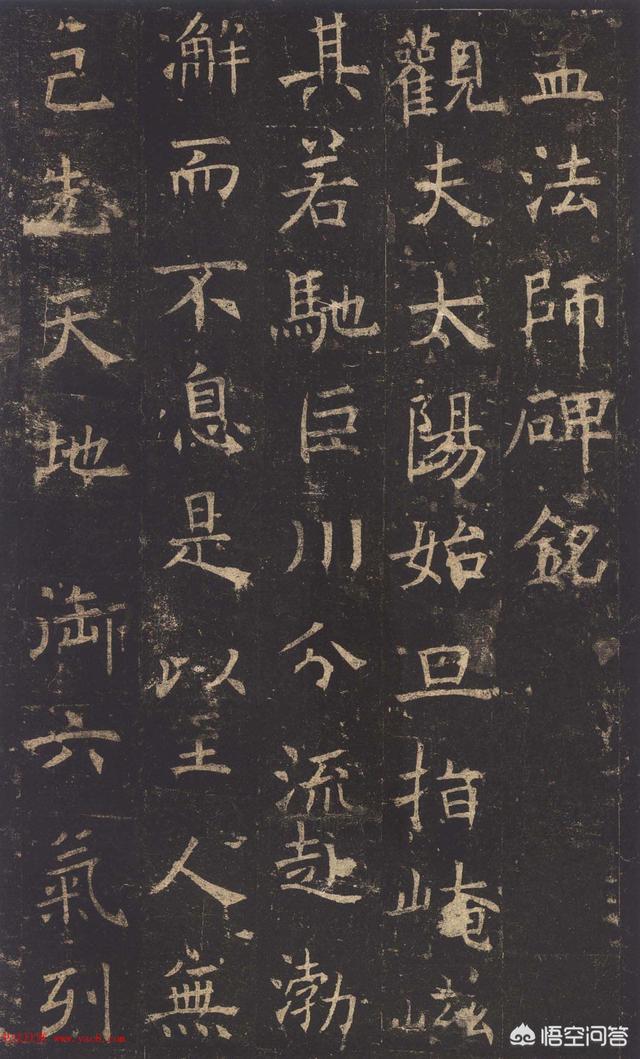 孟法師碑銘
觀夫太陽始旦指崦嵫
其若馳巨川分流赴渤
澥而不息是以至人無
己先天地御六氣列
悟空问答